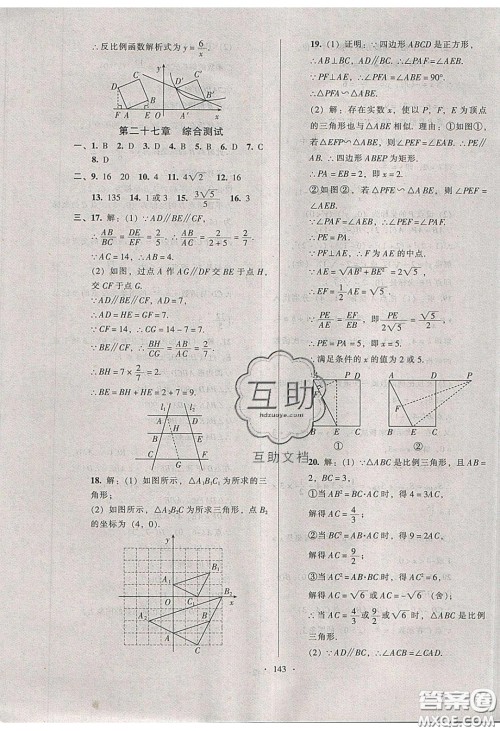 ∴反比例函数解析式为 y = 6/x.
y
D
C
D′
B′
F A E
O
A′
x
第二十七章 综合测试
一、1. B 2. D 3. B 4. A 5. B 6. D 7. C
8. D
二、9. 16 20 10. 4 11. 4√2 12. 16
13. 135 14. 1或4 15. 3√5/5 16. 3
三、17. 解：（1）∵AD∥BE∥CF，
∴AB/BC = DE/EF = 2/5，∴AB/AC = 2/(2+5) = 2/7.
∵AC = 14，∴AB = 4.
（2）如图，过点A作AG∥DF交BE于点H，
交CF于点G.
∵AD∥BE∥CF，AD = 7，
∴AD = HE = GF = 7.
∵CF = 14，∴CG = 14 - 7 = 7.
∵BE∥CF，∴BH/CG = AB/AC = 2/7.
∴BH = 7 × 2/7 = 2.
∴BE = BH + HE = 2 + 7 = 9.
l₁ l₂
A D
H
B E
C G F
18. 解：（1）如图所示，△A₁B₁C₁为所求的三
角形；
（2）如图所示，△A₂B₂C₂为所求三角形，点B₂
的坐标为（4，0）.
y
A₁
B₁
O
C₁
B₂
x
A₂
C₂
19.（1）证明：∵四边形ABCD是正方形，
∴AB⊥BC，AD∥BC. ∴∠PAF = ∠AEB.
∵PF⊥AE，∴∠PFA = ∠ABE = 90°.
∴△PFA∽△ABE.
（2）解：存在实数x，使以P，F，E为顶点
的三角形也与△ABE相似. 理由：①如图①，
若△EFP∽△ABE，则∠PEF = ∠EAB.
∴PE∥AB. ∴四边形ABEP为矩形.
∴PA = EB = 2，即x = 2.
②如图②，若△PFE∽△ABE，则∠PEF =
∠AEB.
∵∠PAF = ∠AEB，∴∠PEF = ∠PAF.
∴PE = PA.
∵PF⊥AE，∴点F为AE的中点.
∵AE = √(AB² + BE²) = 2√5，
∴EF = 1/2 AE = √5.
∵PE/AE = EF/EB，即PE/2√5 = √5/2，
∴PE = 5. ∴PA = PE = 5，即x = 5.
∴满足条件的x的值为2或5.
A P D
F
B E C
①
A D P
F
B E C
②
20. 解：（1）∵△ABC是比例三角形，且AB =
2，BC = 3，
①当AB² = BC·AC时，得4 = 3AC，
解得AC = 4/3；
②当BC² = AB·AC时，得9 = 2AC，
解得AC = 9/2；
③当AC² = AB·BC时，得AC² = 6，
解得AC = √6或AC = -√6（舍）；
∴当AC = 4/3或9/2或√6时，△ABC是比例
三角形.
（2）∵AD∥BC，∴∠ACB = ∠CAD.
· 143 ·
互助
hdzuoye.com
互助文档
答案圈
MXQE.COM